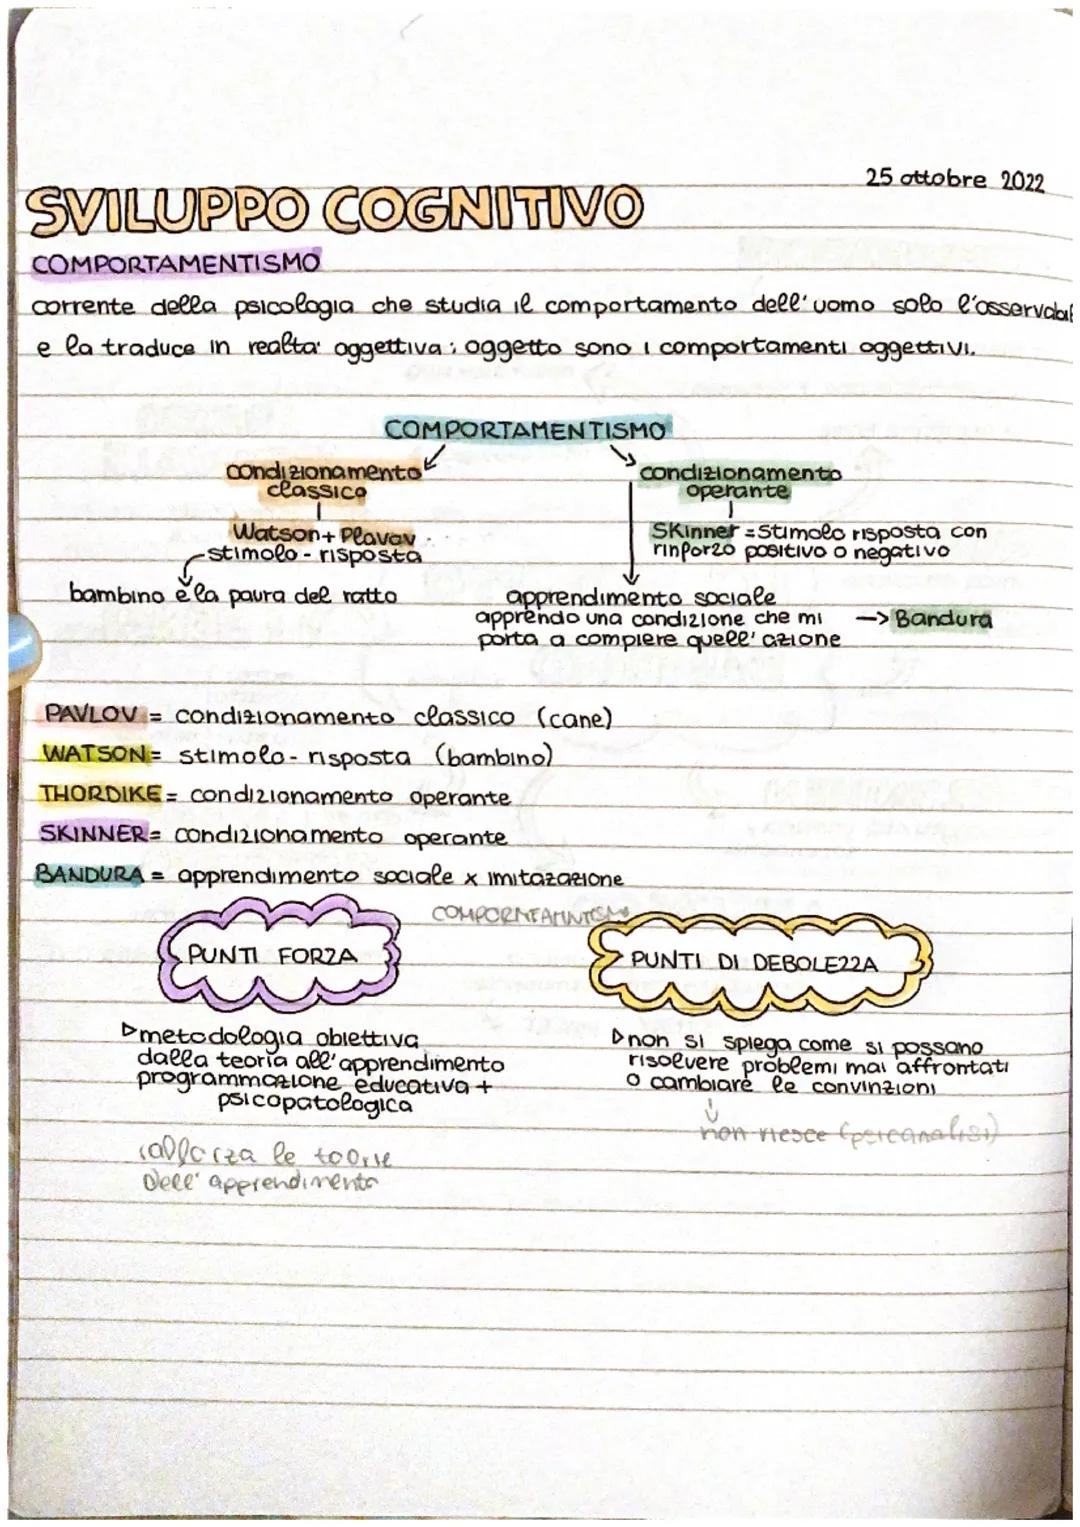 25 ottobre 2022
SVILUPPO COGNITIVO
COMPORTAMENTISMO
corrente della psicologia che studia il comportamento dell'uomo solo l'osservabil
e la traduce in realta' oggettiva; oggetto sono i comportamenti oggettivi.
COMPORTAMENTISMO
condizionamento
classico
condizionamento
operante
Watson+ Plavov
stimolo - risposta
Skinner = Stimolo risposta con
rinforzo positivo o negativo
bambino e la paura del ratto
apprendimento sociale
apprendo una condizione che mi
porta a compiere quell'azione
—> Bandura
PAVLOV = condizionamento classico (cane)
WATSON = stimolo - risposta (bambino)
THORDIKE = condizionamento operante
SKINNER = condizionamento operante
BANDURA = apprendimento sociale x imitazazione
PUNTI FORZA
PUNTI DI DEBOLEZZA
▷metodologia obiettiva
dalla teoria all'apprendimento
programmazione educativa +
psicopatologica
rafforza le teorie
dell'apprendimento
▷non si spiega come si possano
risolvere problemi mai affrontati
o cambiare le convinzioni
non riesce (psicanalisi)